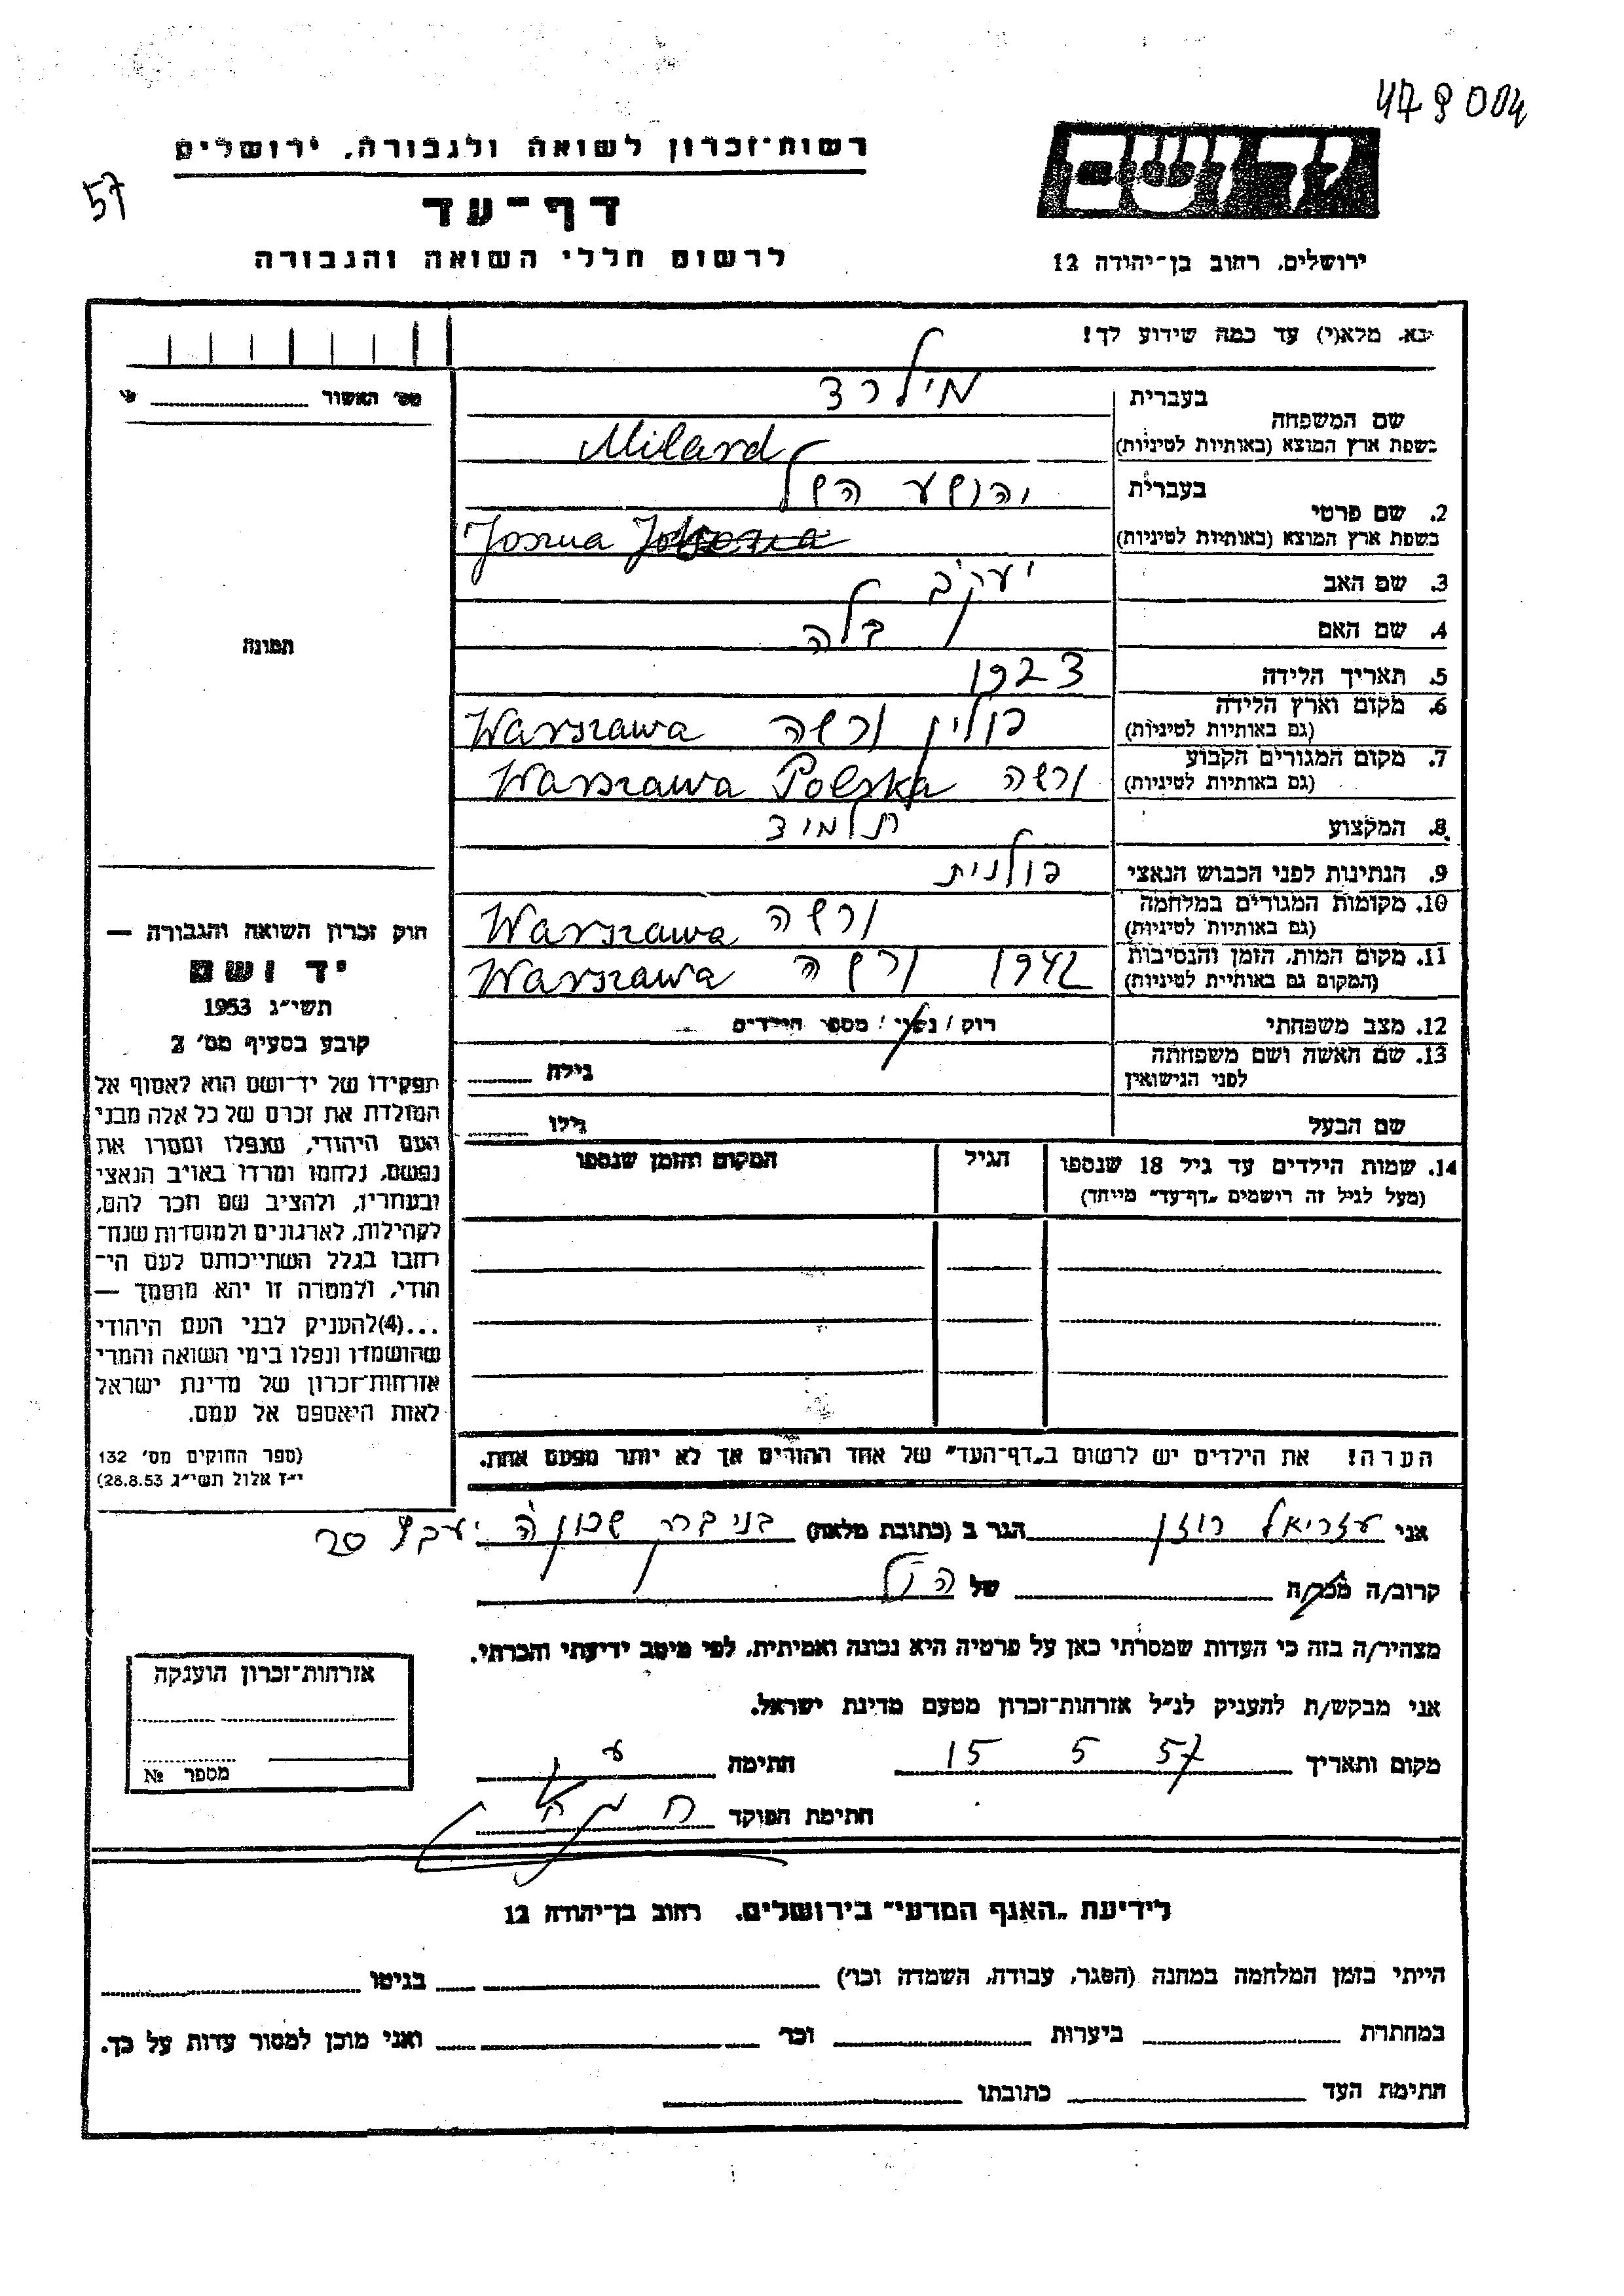 479004
רשות־זכרון לשואה ולגבורה, ירושלים
57
דף־עד
לרשום חללי השואה והגבורה
יד ושם
ירושלים, רחוב בן־יהודה 12
נא מלא(י) עד כמה שידוע לך!
מס' האשור
בעברית מילרד
שם המשפחה
בשפת ארץ המוצא (באותיות לטיניות) Milard
בעברית יהושע השל
2. שם פרטי
בשפת ארץ המוצא (באותיות לטיניות) Joszua
3. שם האב יעקב
4. שם האם בלה
תמונה
5. תאריך הלידה 1923
6. מקום וארץ הלידה פולין ורשה Warszawa
(גם באותיות לטיניות)
7. מקום המגורים הקבוע ורשה Warszawa Polska
(גם באותיות לטיניות)
8. המקצוע תלמיד
9. הנתינות לפני הכבוש הנאצי פולנית
10. מקומות המגורים במלחמה ורשה Warszawa
(גם באותיות לטיניות)
11. מקום המות, הזמן והנסיבות 1942 ורשה Warszawa
(המקום גם באותיות לטיניות)
12. מצב משפחתי רוק / נשוי / מספר הילדים
13. שם האשה ושם משפחתה גילה
לפני הנישואין
שם הבעל גילו
14. שמות הילדים עד גיל 18 שנספו הגיל המקום והזמן שנספו
(מעל לגיל זה רושמים „דף־עד” מיוחד)
חוק זכרון השואה והגבורה —
יד ושם
תשי"ג 1953
קובע בסעיף מס' 2
תפקידו של יד־ושם הוא לאסוף אל
המולדת את זכרם של כל אלה מבני
העם היהודי, שנפלו ומסרו את
נפשם, נלחמו ומרדו באויב הנאצי
ובעוזריו, ולהציב שם וזכר להם,
לקהילות, לארגונים ולמוסדות שנח־
רבו בגלל השתייכותם לעם הי־
הודי, ולמטרה זו יהא מוסמך —
...(4)להעניק לבני העם היהודי
שהושמדו ונפלו בימי השואה והמרי
אזרחות־זכרון של מדינת ישראל
לאות היאספם אל עמם.
(ספר החוקים מס' 132
י"ז אלול תשי"ג 28.8.53)
הערה! את הילדים יש לרשום ב„דף־העד” של אחד ההורים אך לא יותר מפעם אחת.
אני עזריאל רוזן הגר ב (כתובת מלאה) בני ברק שכון ה יעבץ
קרוב/ה מכר/ה של הנ"ל
מצהיר/ה בזה כי העדות שמסרתי כאן על פרטיה היא נכונה ואמיתית, לפי מיטב ידיעתי והכרתי.
אני מבקש/ת להעניק לנ"ל אזרחות־זכרון מטעם מדינת ישראל.
מקום ותאריך 15 5 57 חתימה
חתימת הפוקד
אזרחות־זכרון הוענקה
מספר №
לידיעת „האגף המדעי” בירושלים, רחוב בן־יהודה 12
הייתי בזמן המלחמה במחנה (הסגר, עבודה, השמדה וכו') בגיטו
במחתרת ביערות וכו' ואני מוכן למסור עדות על כך.
חתימת העד כתובתו